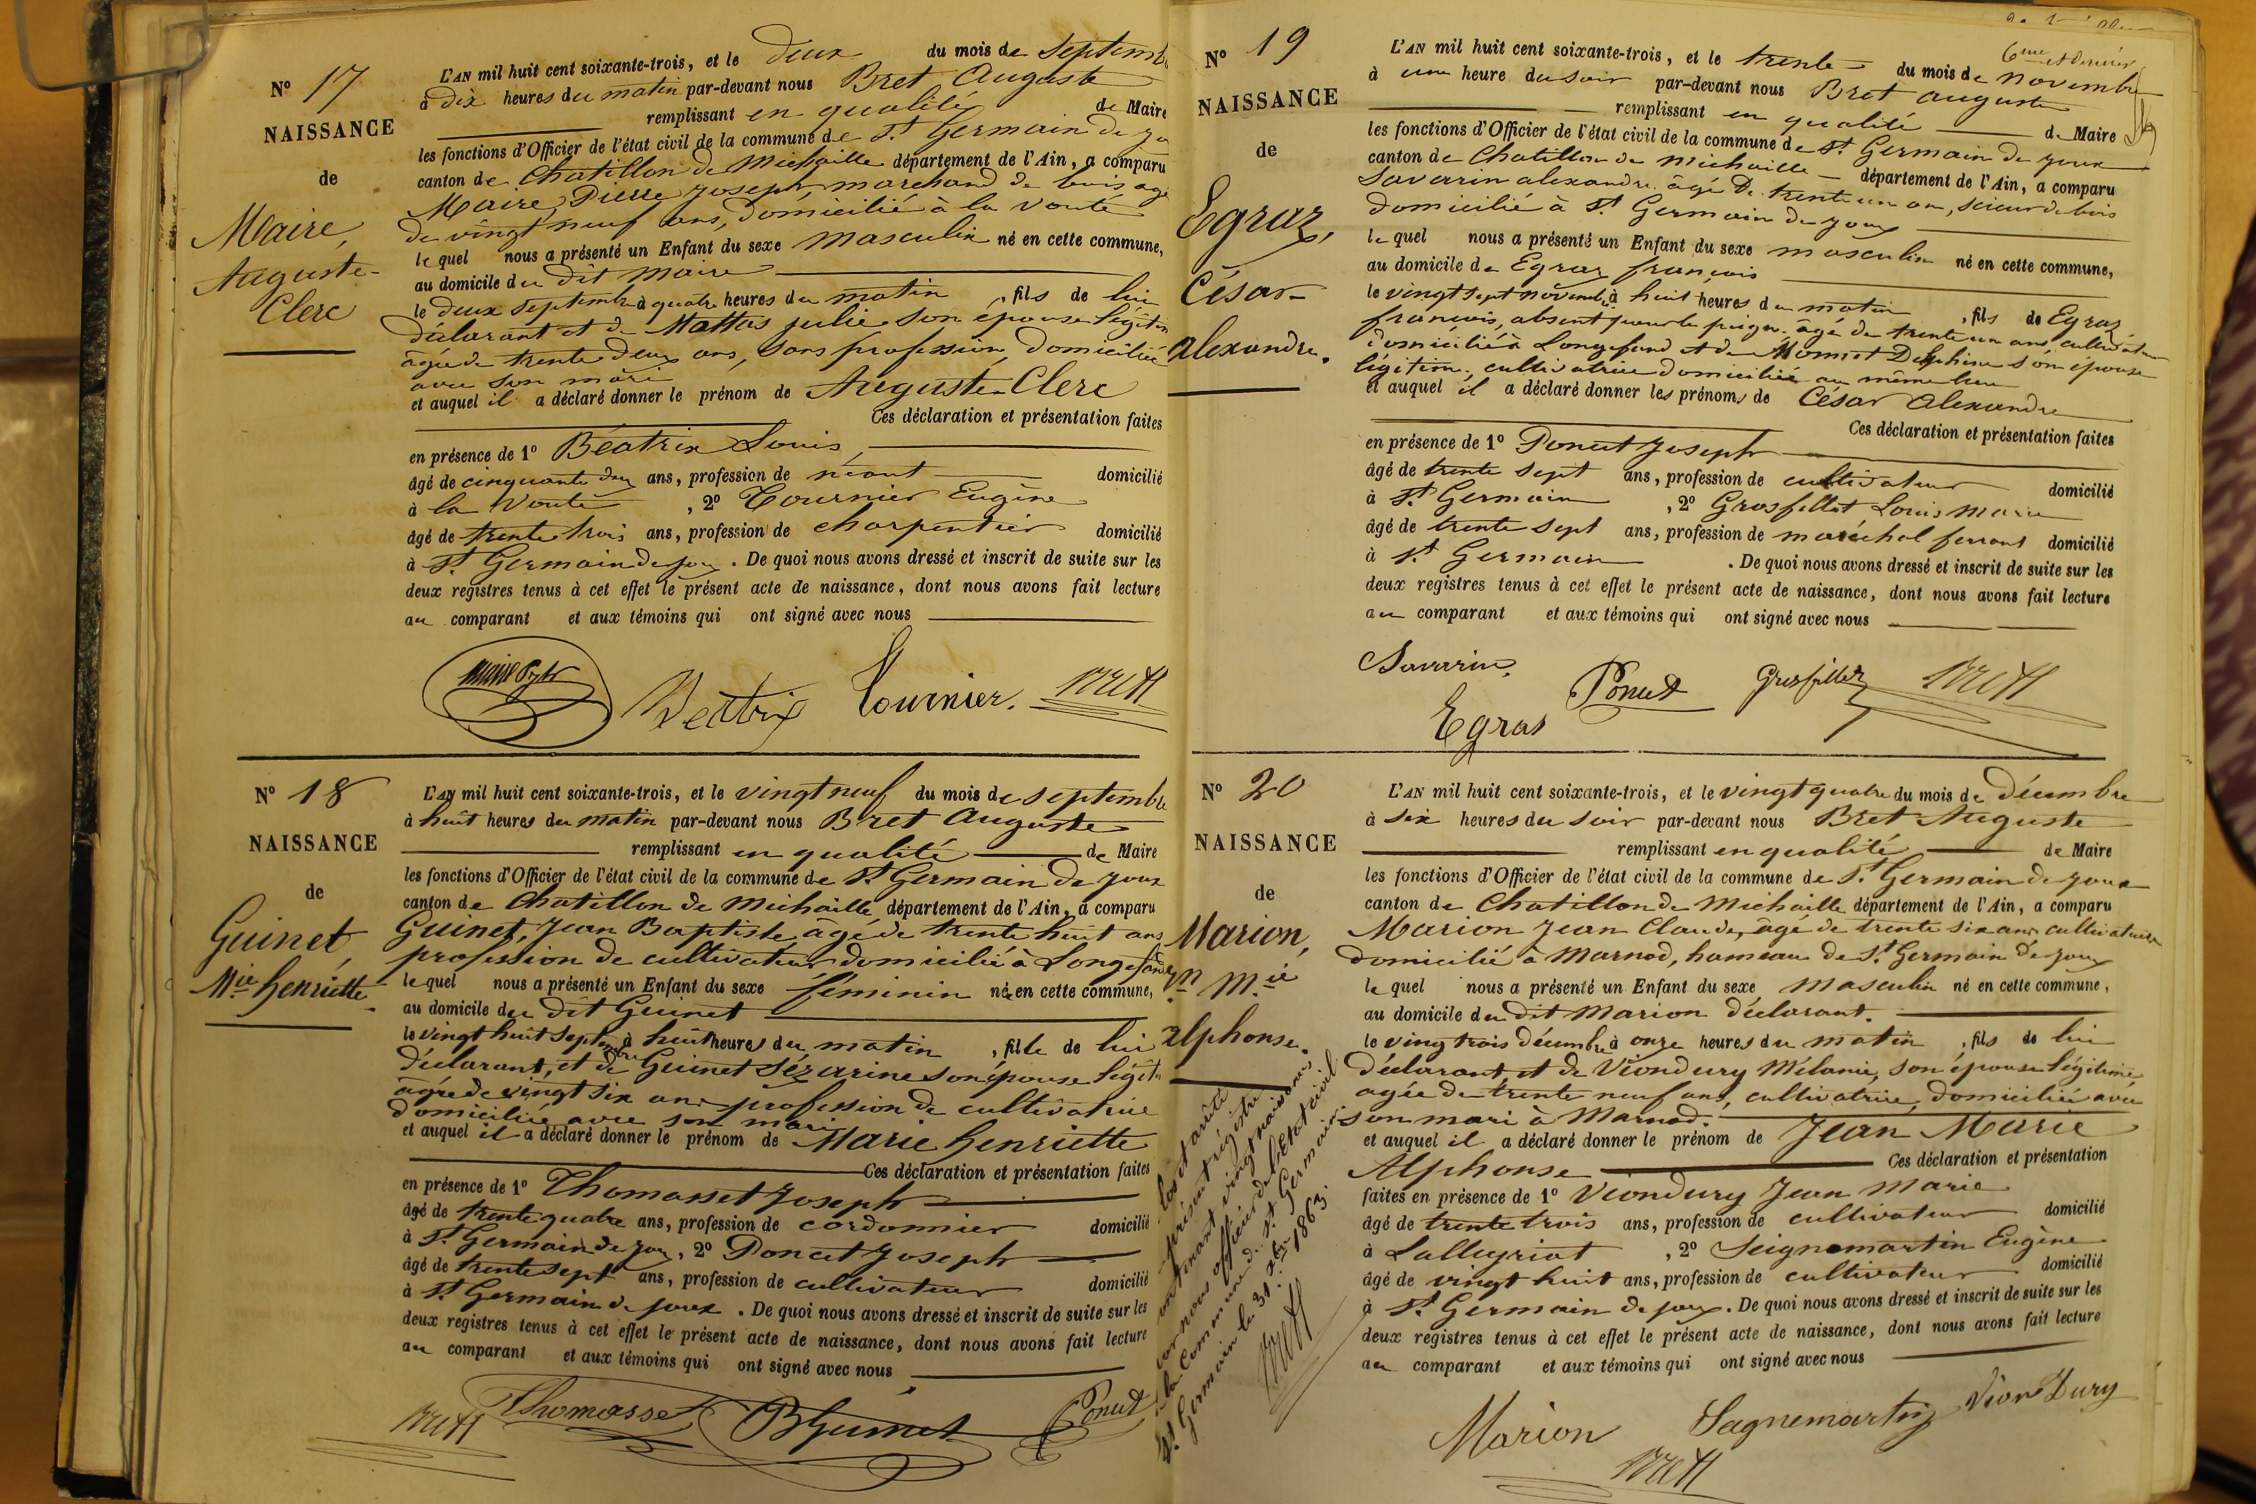 N° 17
NAISSANCE
de
Maire,
Auguste-
Clerc
L'AN mil huit cent soixante-trois, et le deux du mois de Septemb
à dix heures du matin par-devant nous Bret Auguste
remplissant en qualité de Maire
les fonctions d'Officier de l'état civil de la commune de St Germain de jou
canton de Chatillon de Michaille département de l'Ain, a comparu
Maire, Pierre Joseph marchand de bois agé
de vingt neuf ans, domicilié à la Voute
lequel nous a présenté un Enfant du sexe masculin né en cette commune,
au domicile du dit maire
le deux septembre à quatre heures du matin, fils de lui
déclarant et de Mattas julie son épouse légitim
âgée de trente deux ans, sans profession, domiciliée
avec son mari
et auquel il a déclaré donner le prénom de Auguste-Clerc
Ces déclaration et présentation faites
en présence de 1° Béatrix Louis,
âgé de cinquante deux ans, profession de néant domicilié
à la Voute, 2° Tournier Eugène
âgé de trente trois ans, profession de charpentier domicilié
à St Germain de joux. De quoi nous avons dressé et inscrit de suite sur les
deux registres tenus à cet effet le présent acte de naissance, dont nous avons fait lecture
au comparant et aux témoins qui ont signé avec nous
Béatrix Tournier. Brett
N° 18
NAISSANCE
de
Guinet,
Mie henriette
L'AN mil huit cent soixante-trois, et le vingt neuf du mois de septembre
à huit heures du matin par-devant nous Bret Auguste
remplissant en qualité de Maire
les fonctions d'Officier de l'état civil de la commune de St Germain de joux
canton de Chatillon de Michaille, département de l'Ain, a comparu
Guinet, Jean Baptiste âgé de trente huit ans
profession de cultivateur domicilié à Longefand
lequel nous a présenté un Enfant du sexe féminin né en cette commune,
au domicile du dit Guinet
le vingt huit septembre à huit heures du matin, fille de lui
déclarant, et de Guinet Sézarine son épouse légit.
âgée de vingt six ans profession de cultivatrice
domiciliée avec son mari
et auquel il a déclaré donner le prénom de Marie henriette
Ces déclaration et présentation faites
en présence de 1° Thomasset Joseph
âgé de trente quatre ans, profession de cordonnier domicilié
à St Germain de joux, 2° Poncet Joseph
âgé de trente sept ans, profession de cultivateur domicilié
à St Germain de joux. De quoi nous avons dressé et inscrit de suite sur les
deux registres tenus à cet effet le présent acte de naissance, dont nous avons fait lecture
au comparant et aux témoins qui ont signé avec nous
Brett Thomasset BGuinet Poncet
6me et dernier
N° 19
NAISSANCE
de
Egraz,
César-
alexandre.
L'AN mil huit cent soixante-trois, et le trente du mois de novembre
à une heure du soir par-devant nous Bret auguste
remplissant en qualité de Maire
les fonctions d'Officier de l'état civil de la commune de St Germain de joux
canton de Chatillon de michaille département de l'Ain, a comparu
Savarin alexandre âgé de trente un an, scieur de bois
domicilié à St Germain de joux
lequel nous a présenté un Enfant du sexe masculin né en cette commune,
au domicile de Egraz françois
le vingt sept novembre à huit heures du matin, fils de Egraz
françois, absent pour le peigne. âgé de trente un ans, cultivateur
domicilié à Longefand et de Monnet Delphine son épouse
légitime, cultivatrice domiciliée au même lieu
et auquel il a déclaré donner les prénoms de César Alexandre
Ces déclaration et présentation faites
en présence de 1° Poncet Joseph
âgé de trente sept ans, profession de cultivateur domicilié
à St Germain, 2° Grosfillet Louis Marie
âgé de trente sept ans, profession de maréchal ferrant domicilié
à St Germain. De quoi nous avons dressé et inscrit de suite sur les
deux registres tenus à cet effet le présent acte de naissance, dont nous avons fait lecture
au comparant et aux témoins qui ont signé avec nous
Savarin, Poncet Grosfillet Brett
Egras
N° 20
NAISSANCE
de
Marion,
Jn Mie
alphonse.
L'AN mil huit cent soixante-trois, et le vingt quatre du mois de décembre
à six heures du soir par-devant nous Bret Auguste
remplissant en qualité de Maire
les fonctions d'Officier de l'état civil de la commune de St Germain de joux
canton de Chatillon de Michaille département de l'Ain, a comparu
Marion Jean Claude, âgé de trente six ans cultivateur
domicilié à Marnod, hameau de St Germain de joux
lequel nous a présenté un Enfant du sexe masculin né en cette commune,
au domicile du dit Marion déclarant.
le vingt trois décembre à onze heures du matin, fils de lui
déclarant et de Viondury Mélanie, son épouse légitime,
agée de trente neuf ans, cultivatrice, domiciliée avec
son mari à Marnod.
et auquel il a déclaré donner le prénom de Jean Marie
Alphonse Ces déclaration et présentation
faites en présence de 1° Viondury Jean Marie
âgé de trente trois ans, profession de cultivateur domicilié
à Lalleyriat, 2° Seignemartin Eugène
âgé de vingt huit ans, profession de cultivateur domicilié
à St Germain de joux. De quoi nous avons dressé et inscrit de suite sur les
deux registres tenus à cet effet le présent acte de naissance, dont nous avons fait lecture
au comparant et aux témoins qui ont signé avec nous
Marion Sagnemartin Vion Dury
Brett
Clos et arêté le
présent régistre
contenant vingt naissances
par nous officier de l'Etat civil
de la Commune de St Germain
St Germain le 31 Xbre 1863.
Brett